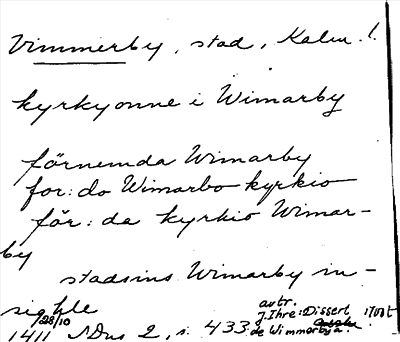 Vimmerby, stad, Kalm. l.
kyrkyonne i Wimarby
förnemda Wimarby
for: do Wimarbo kyrkio
för: da kyrkio Wimar-
by
stadsins Wimarby in-
sighle
28/10
1411 SDns 2, s. 433.
avtr.
J. Ihre: Dissert
de Wimmerbya.